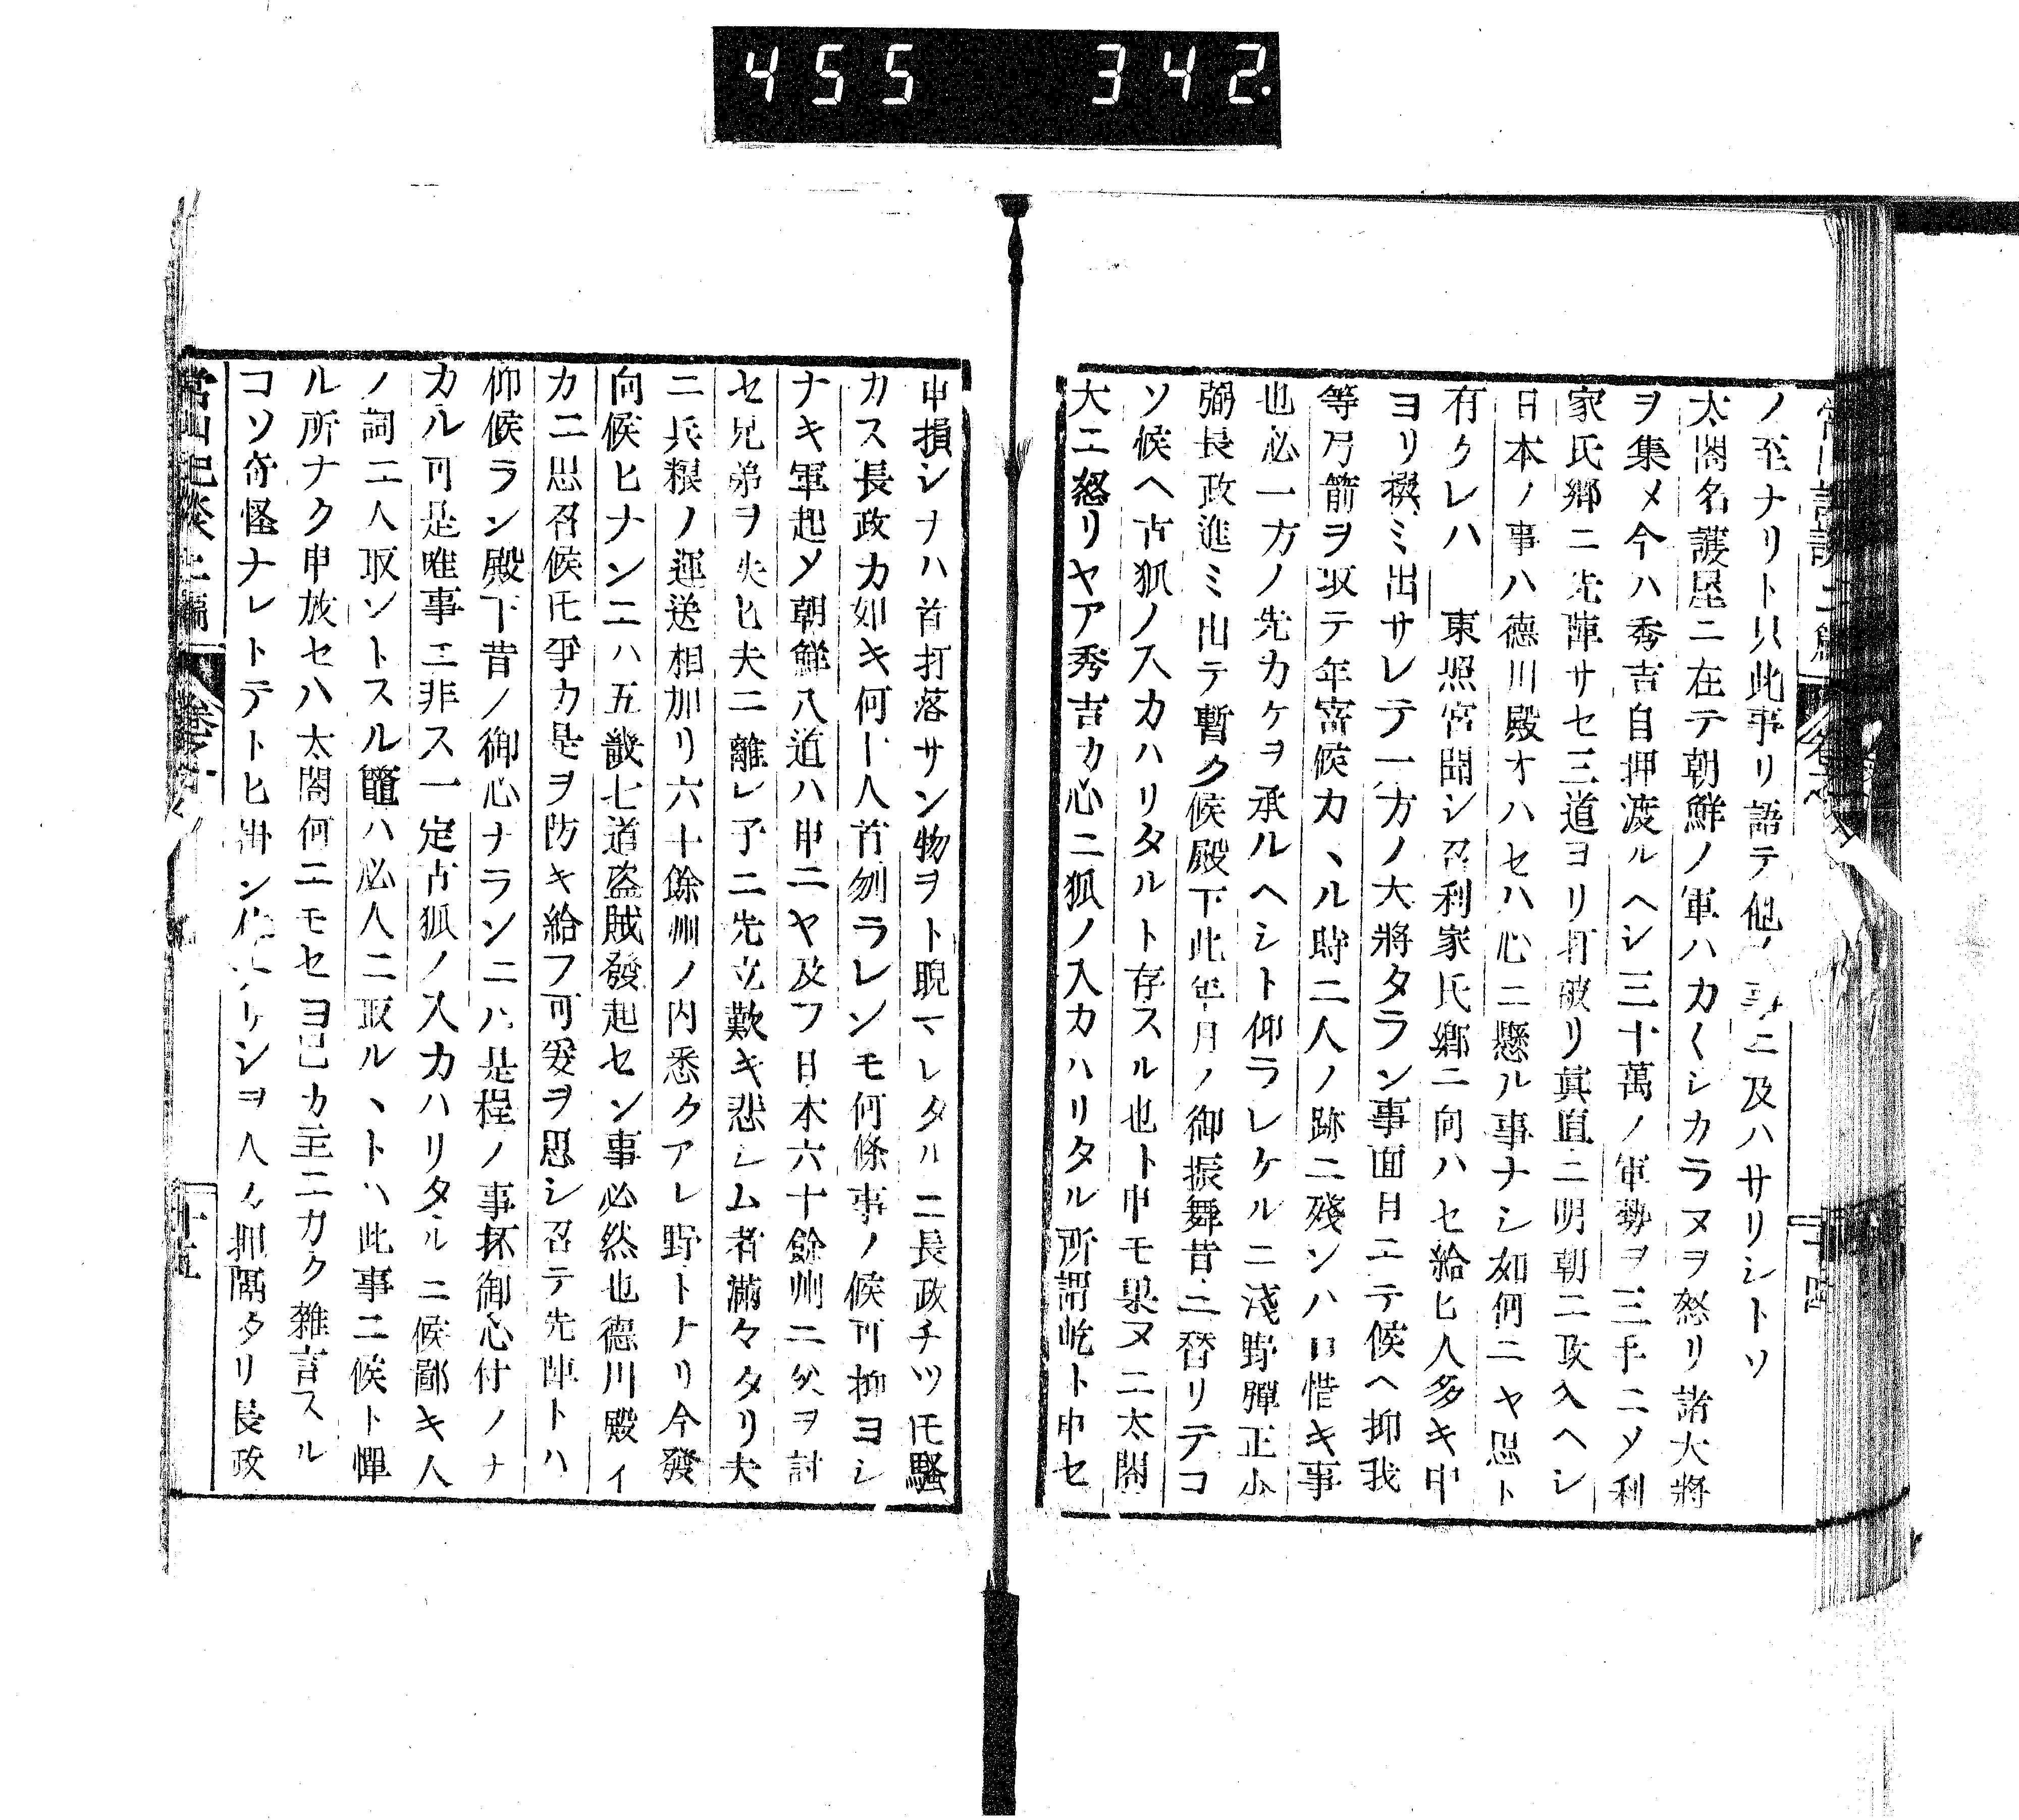 455 342.
ノ至ナリト只此事リ語テ他ノ事ニ及ハサリシトソ
太閤名護屋ニ在テ朝鮮ノ軍ハカ〱シカラヌヲ怒リ諸大將
ヲ集メ今ハ秀吉自押渡ルヘシ三十萬ノ軍勢ヲ三手ニソ利
家氏郷ニ先陣サセ三道ヨリ打破リ眞直ニ明朝ニ攻入ヘシ
日本ノ事ハ德川殿オハセハ心ニ懸ル事ナシ如何ニヤ思ト
有クレハ 東照宮聞シ召利家氏郷ニ向ハセ給ヒ人多キ中
ヨリ撰ミ出サレテ一方ノ大將タラン事面目ニテ候ヘ抑我
等弓箭ヲ取テ年宻候カヽル時二人ノ跡ニ殘ンハ口惜キ事
也必一方ノ先カケヲ承ルヘシト仰ラレケルニ淺野彈正少
弼長政進ミ出テ暫ク候殿下此年月ノ御振舞昔ニ替リテコ
ソ候ヘ古狐ノ入カハリタルト存スル也ト申モ果ヌニ太閤
大ニ怒リヤア秀吉カ心ニ狐ノ入カハリタル所謂屹ト申セ
申損シナハ首打落サン物ヲト睨マレタルニ長政チツ𪜈騷
カス長政カ如キ何十人首刎ラレンモ何條事ノ候可抑ヨシ
ナキ軍起ソ朝鮮八道ハ申ニヤ及フ日本六十餘州ニ父ヲ討
セ兄弟ヲ失ヒ夫ニ離レ子ニ先立歎キ悲シム者滿々タリ大
ニ兵粮ノ運送相加リ六十餘州ノ内悉クアレ野トナリ今發
向候ヒナンニハ五畿七道盗賊發起セン事必然也德川殿イ
カニ思召候𪜈爭カ是ヲ防キ給フ可爰ヲ思シ召テ先陣トハ
仰候ラン殿下昔ノ御心ナランニハ是程ノ事抔御心付ノナ
カル可是唯事ニ非ス一定古狐ノ入カハリタルニ候鄙キ人
ノ詞ニ人取ントスル鼈ハ必人ニ取ルヽトハ此事ニ候ト憚
ル所ナク申放セハ太閤何ニモセヨ己カ主ニカク雜言スル
コソ奇怪ナレトテトヒ掛ン リシヲ人々押隔タリ長政
常山紀談 十五